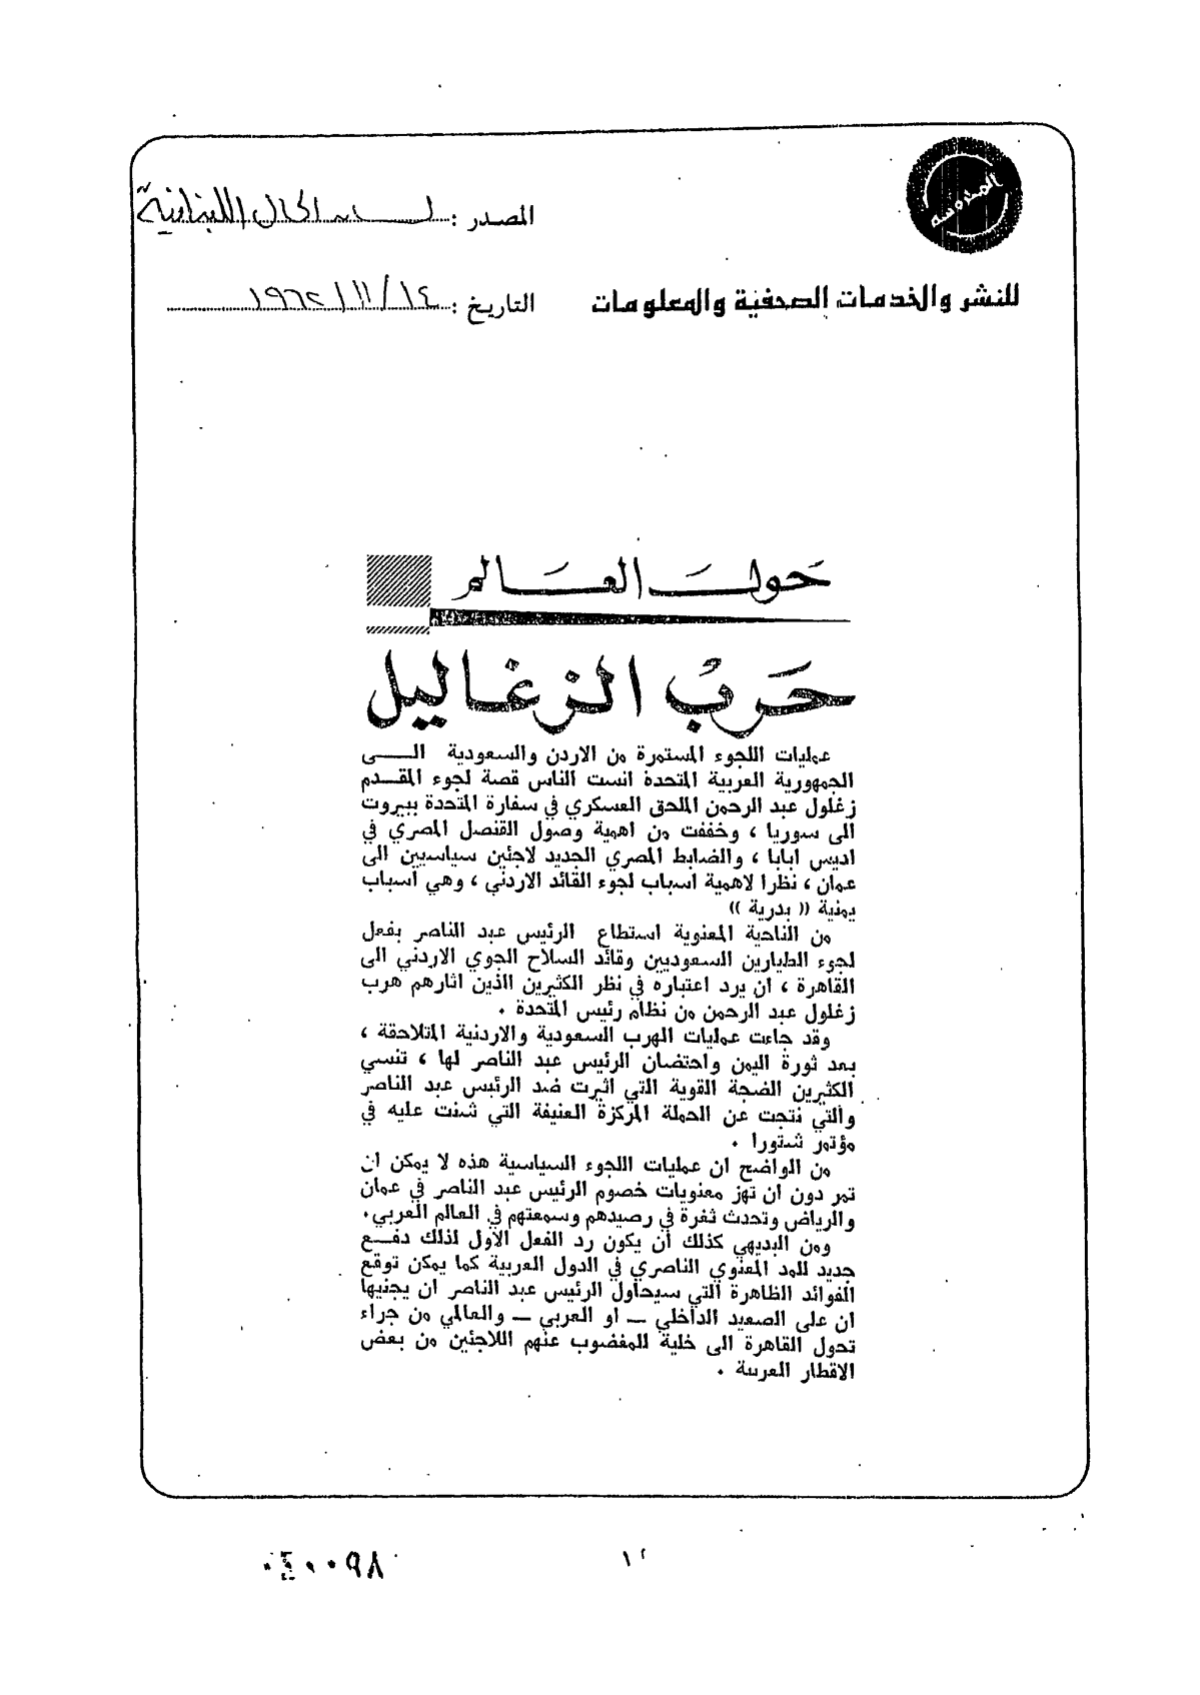 المصدر : لسان الحال اللبنانية
للنشر والخدمات الصحفية والمعلومات
التاريخ : ١٩٦٢/١١/١٤
حول العالم
حرب الزغاليل
عمليات اللجوء المستمرة من الاردن والسعودية الى
الجمهورية العربية المتحدة انست الناس قصة لجوء المقدم
زغلول عبد الرحمن الملحق العسكري في سفارة المتحدة ببيروت
الى سوريا ، وخففت من اهمية وصول القنصل المصري في
اديس ابابا ، والضابط المصري الجديد لاجئين سياسيين الى
عمان ، نظرا لاهمية اسباب لجوء القائد الاردني ، وهي اسباب
يمنية (( بدرية ))
من الناحية المعنوية استطاع الرئيس عبد الناصر بفعل
لجوء الطيارين السعوديين وقائد السلاح الجوي الاردني الى
القاهرة ، ان يرد اعتباره في نظر الكثيرين الذين اثارهم هرب
زغلول عبد الرحمن من نظام رئيس المتحدة .
وقد جاءت عمليات الهرب السعودية والاردنية المتلاحقة ،
بعد ثورة اليمن واحتضان الرئيس عبد الناصر لها ، تنسي
الكثيرين الضجة القوية التي اثيرت ضد الرئيس عبد الناصر
والتي نتجت عن الحملة المركزة العنيفة التي شنت عليه في
مؤتمر شتورا .
من الواضح ان عمليات اللجوء السياسية هذه لا يمكن ان
تمر دون ان تهز معنويات خصوم الرئيس عبد الناصر في عمان
والرياض وتحدث ثغرة في رصيدهم وسمعتهم في العالم العربي.
ومن البديهي كذلك أن يكون رد الفعل الاول لذلك دفع
جديد للمد المعنوي الناصري في الدول العربية كما يمكن توقع
الفوائد الظاهرة التي سيحاول الرئيس عبد الناصر ان يجنيها
ان على الصعيد الداخلي — او العربي — والعالمي من جراء
تحول القاهرة الى خلية للمغضوب عنهم اللاجئين من بعض
الاقطار العربية .
٠٤٠٠٩٨